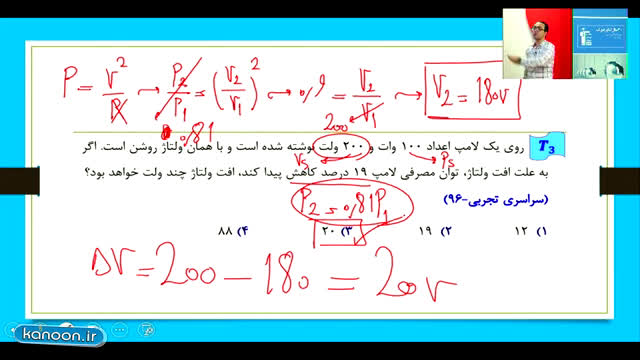 P = V² / R → P₂ / P₁ = (V₂ / V₁)² → ۰/۹ = V₂ / V₁ → V₂ = 180V
0,81
200
T₃
روی یک لامپ اعداد ۱۰۰ وات و ۲۰۰ ولت نوشته شده است و با همان ولتاژ روشن است. اگر
به علت افت ولتاژ، توان مصرفی لامپ ۱۹ درصد کاهش پیدا کند، افت ولتاژ چند ولت خواهد بود؟
(سراسری تجربی-۹۶)
P₂ = 0,81P₁
۱) ۱۲ ۲) ۱۹ ۳) ۲۰ ۴) ۸۸
ΔV = 200 − 180 = 20V
kanoon.ir